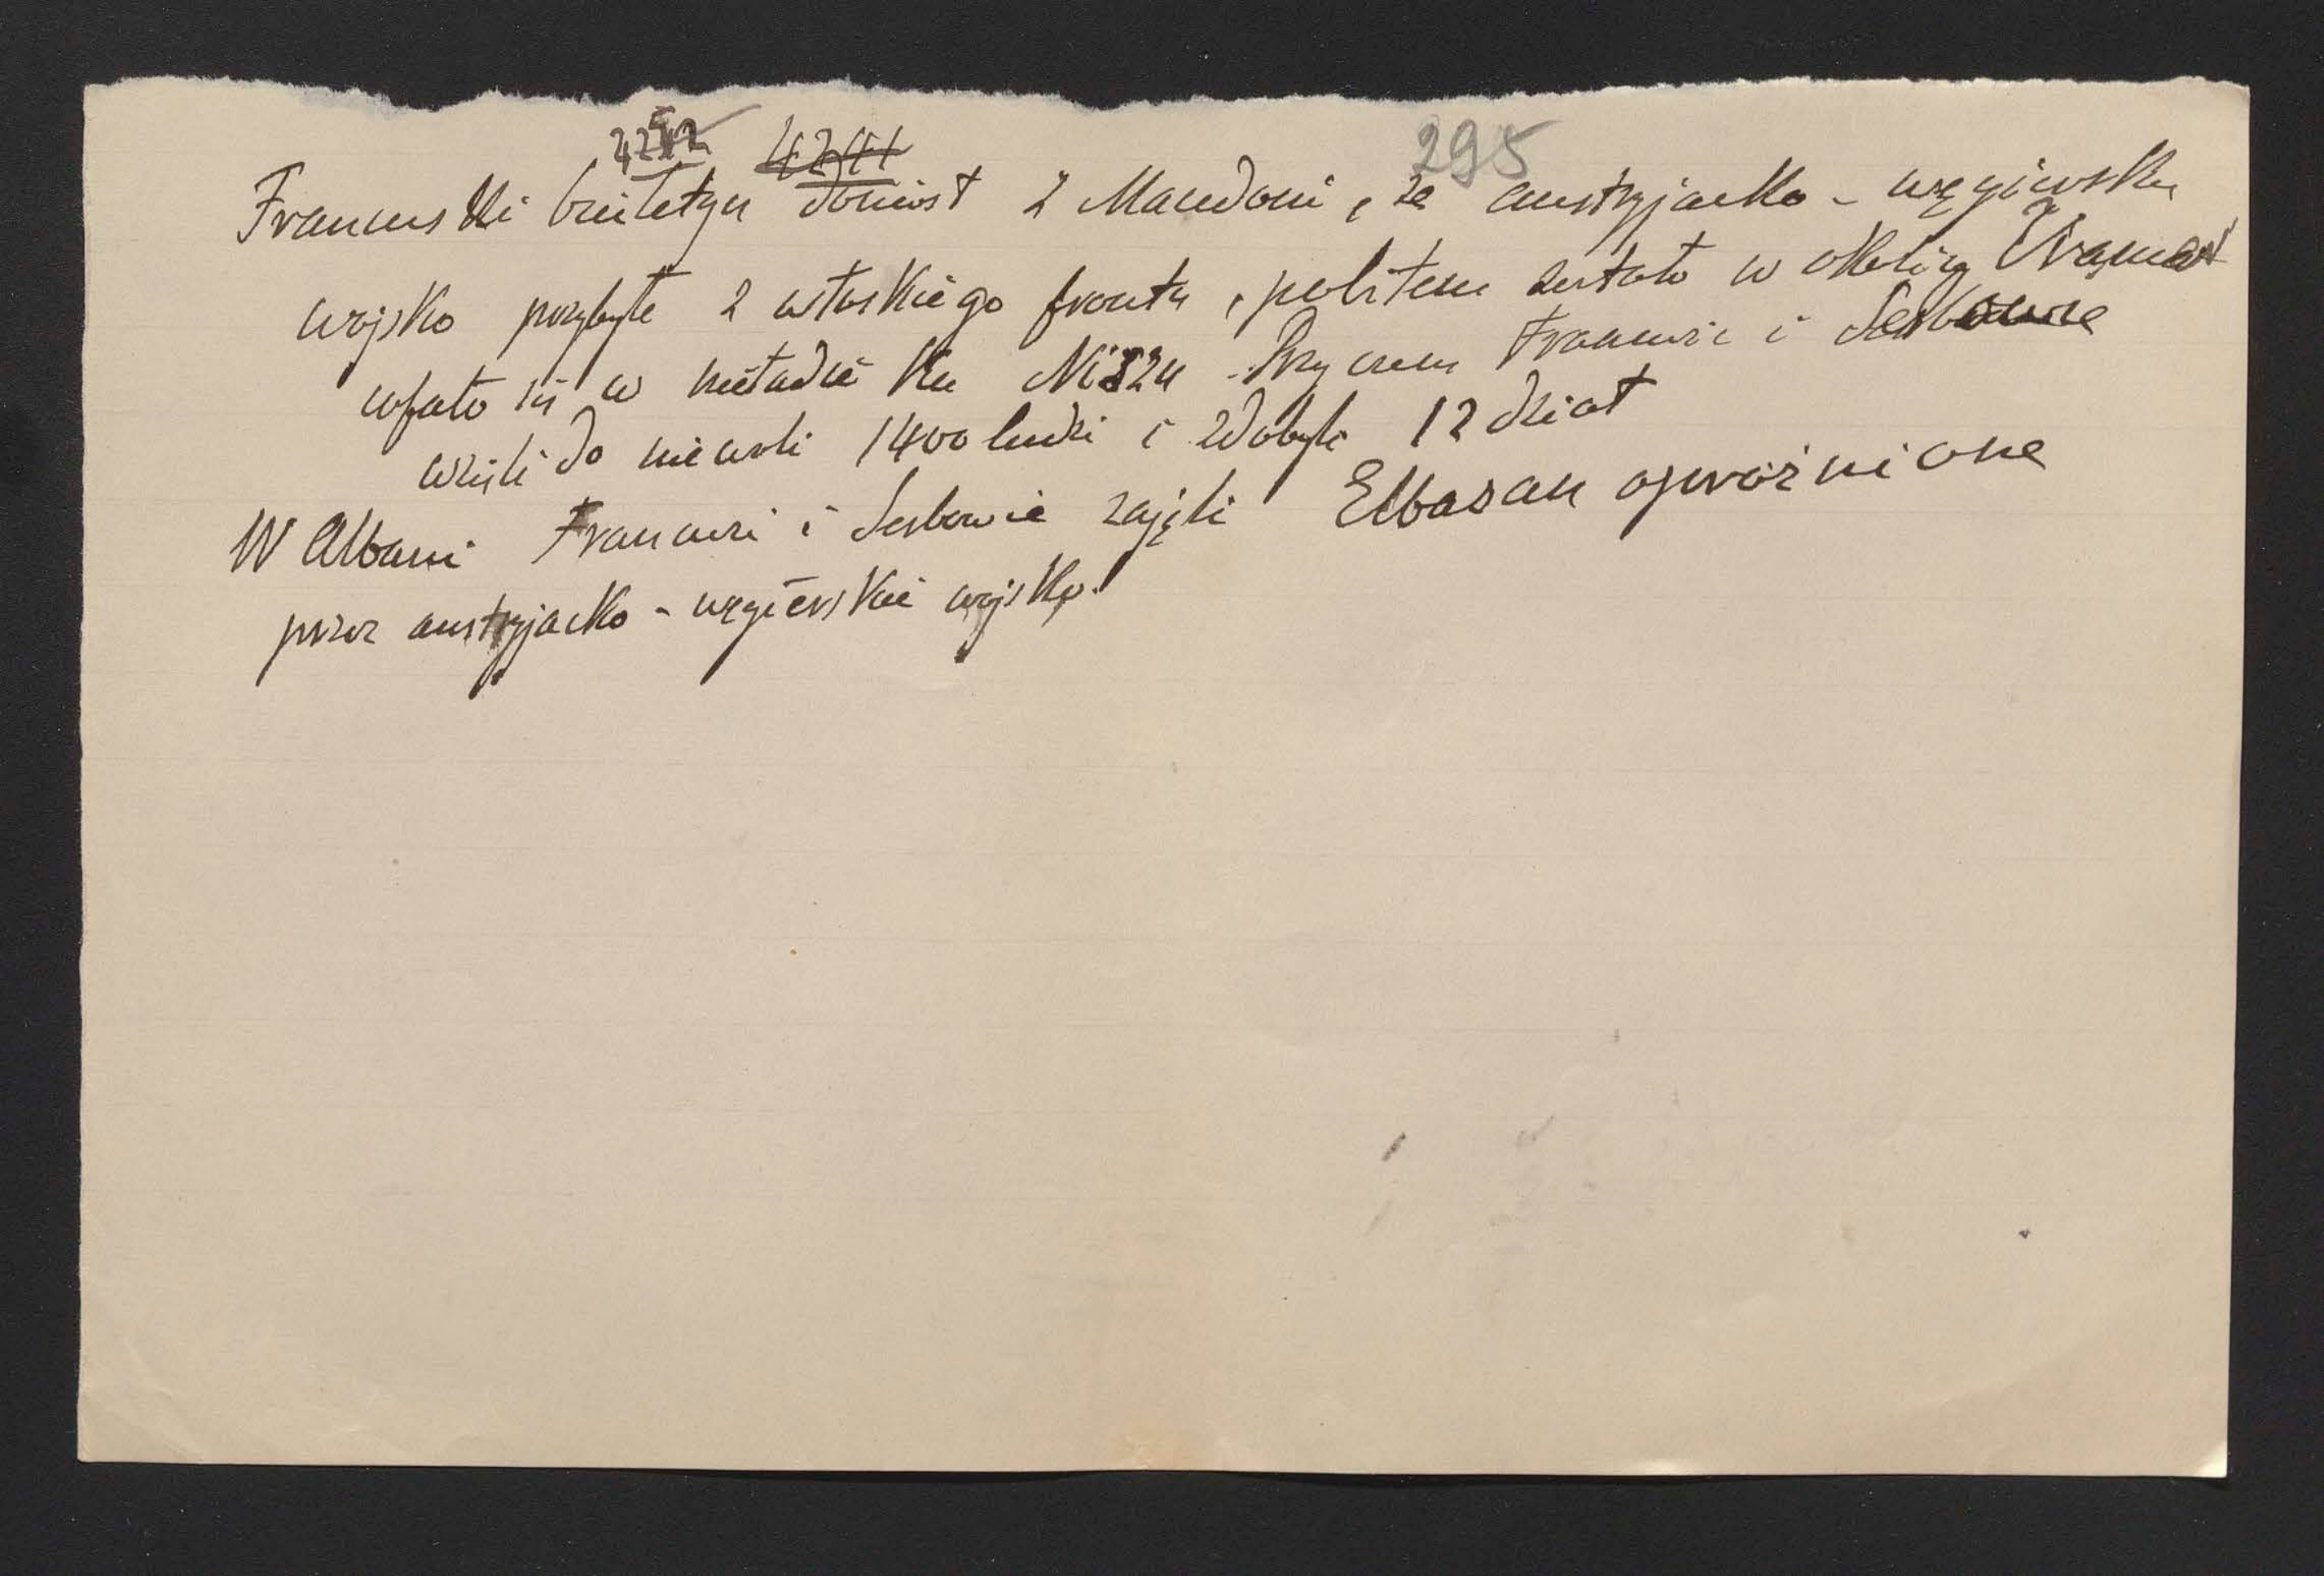 4242 295
Francuski biuletyn doniósł z Macedoni, że austryjacko - węgierskie
wojsko przybyłe z włoskiego frontu, pobitem zostało w okolicy Vranie
cofało się w nieładzie ku Niszu - Przyczem Francuzi i Serbowie
wzięli do niewoli 1400 ludzi i zdobyli 12 dział
W Albani Francuzi i Serbowie zajęli Elbasan opróżnione
przez austryjacko - węgierskie wojsko.